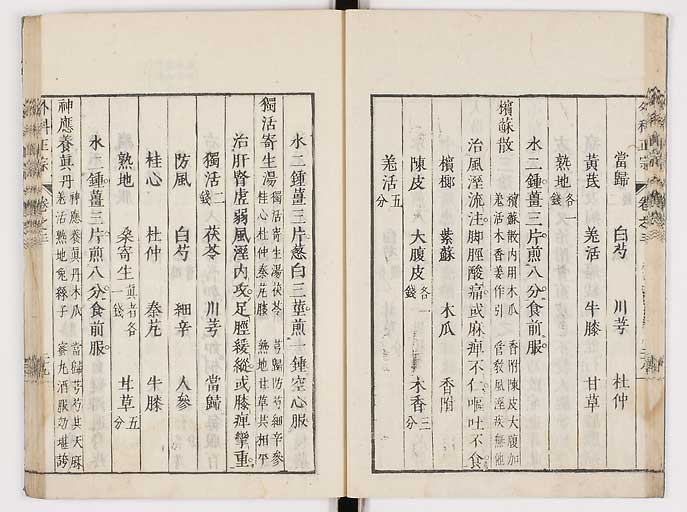 當歸 白芍 川芎 杜仲
黃芪 羗活 牛膝 甘草
熟地各一錢
水二鍾薑三片煎八分食前服
檳蘇散 檳蘇散內用木瓜 香附陳皮大腹加
羗活木香姜作引 管敎風溼疾無他
治風溼流注脚脛酸痛或麻痺不仁嘔吐不食
檳榔 紫蘇 木瓜 香附
陳皮 大腹皮各一錢 木香三分
羗活五分
水二鍾薑三片葱白三莖煎一鍾空心服
獨活寄生湯 獨活寄生湯茯苓 芎歸防芍細辛參
桂心杜仲秦艽膝 熟地甘草共相平
治肝腎虛弱風溼內攻足脛緩縱或膝痺攣重
獨活二錢 茯苓 川芎 當歸
防風 白芍 細辛 人參
桂心 杜仲 秦艽 牛膝
熟地 桑寄生真者各一錢 甘草五分
水二鍾薑三片煎八分食前服
神應養眞丹 神應養眞丹木瓜 當歸芎芍共天麻
羗活熟地兔絲子 蜜丸酒服功堪誇
外科正宗 卷之三